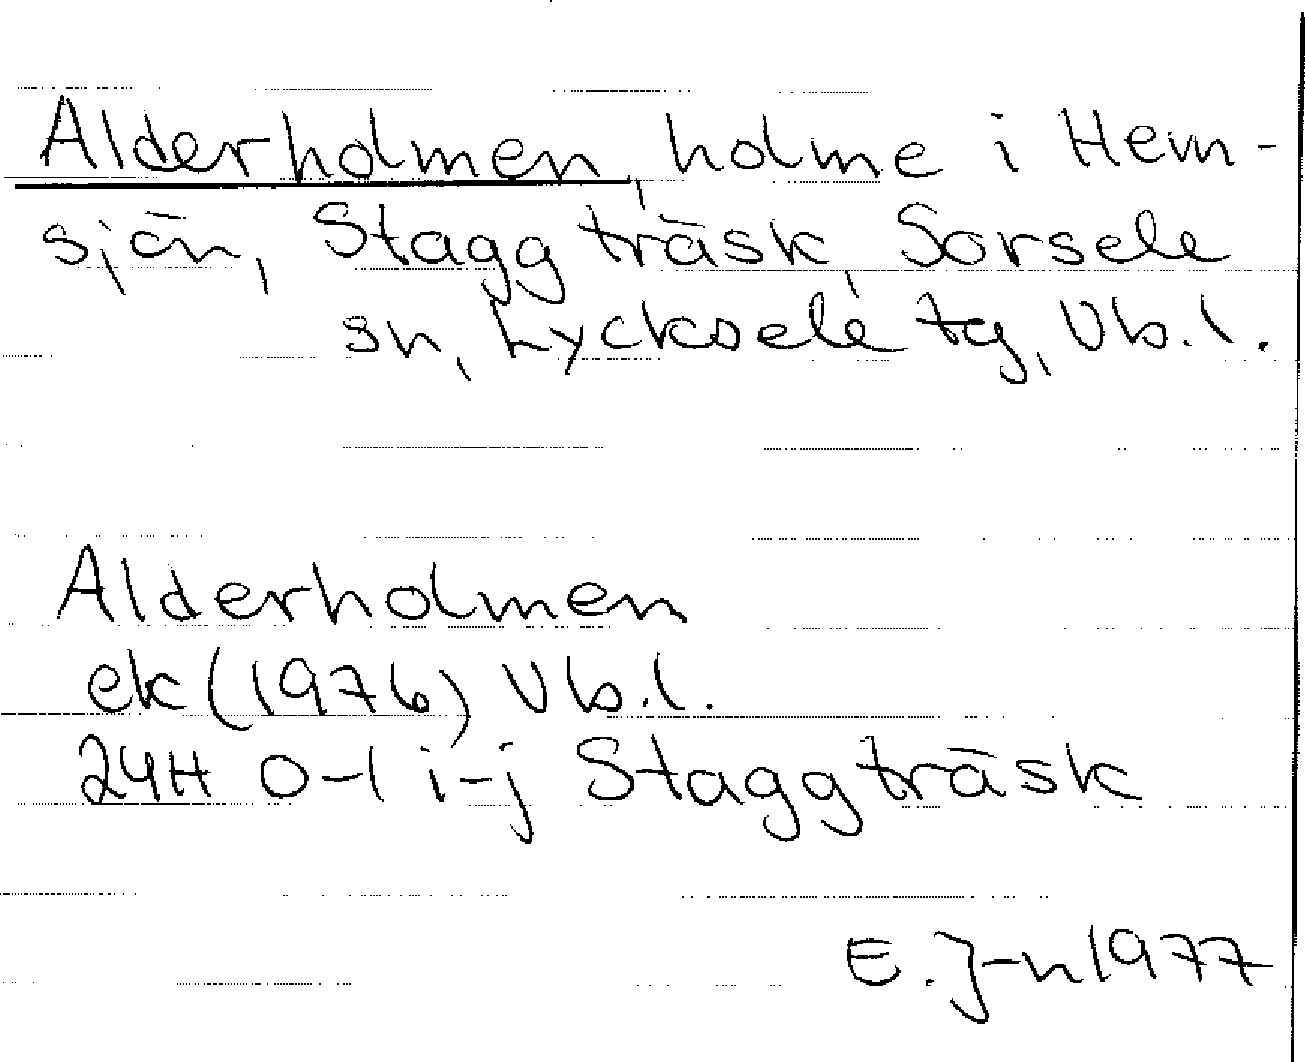 Alderholmen, holme i Hem-
sjön, Staggträsk, Sorsele
sn, Lycksele tg, Vb.l.
Alderholmen
ek (1976) Vb.l.
24H 0-1 i-j Staggträsk
E. J-n 1977